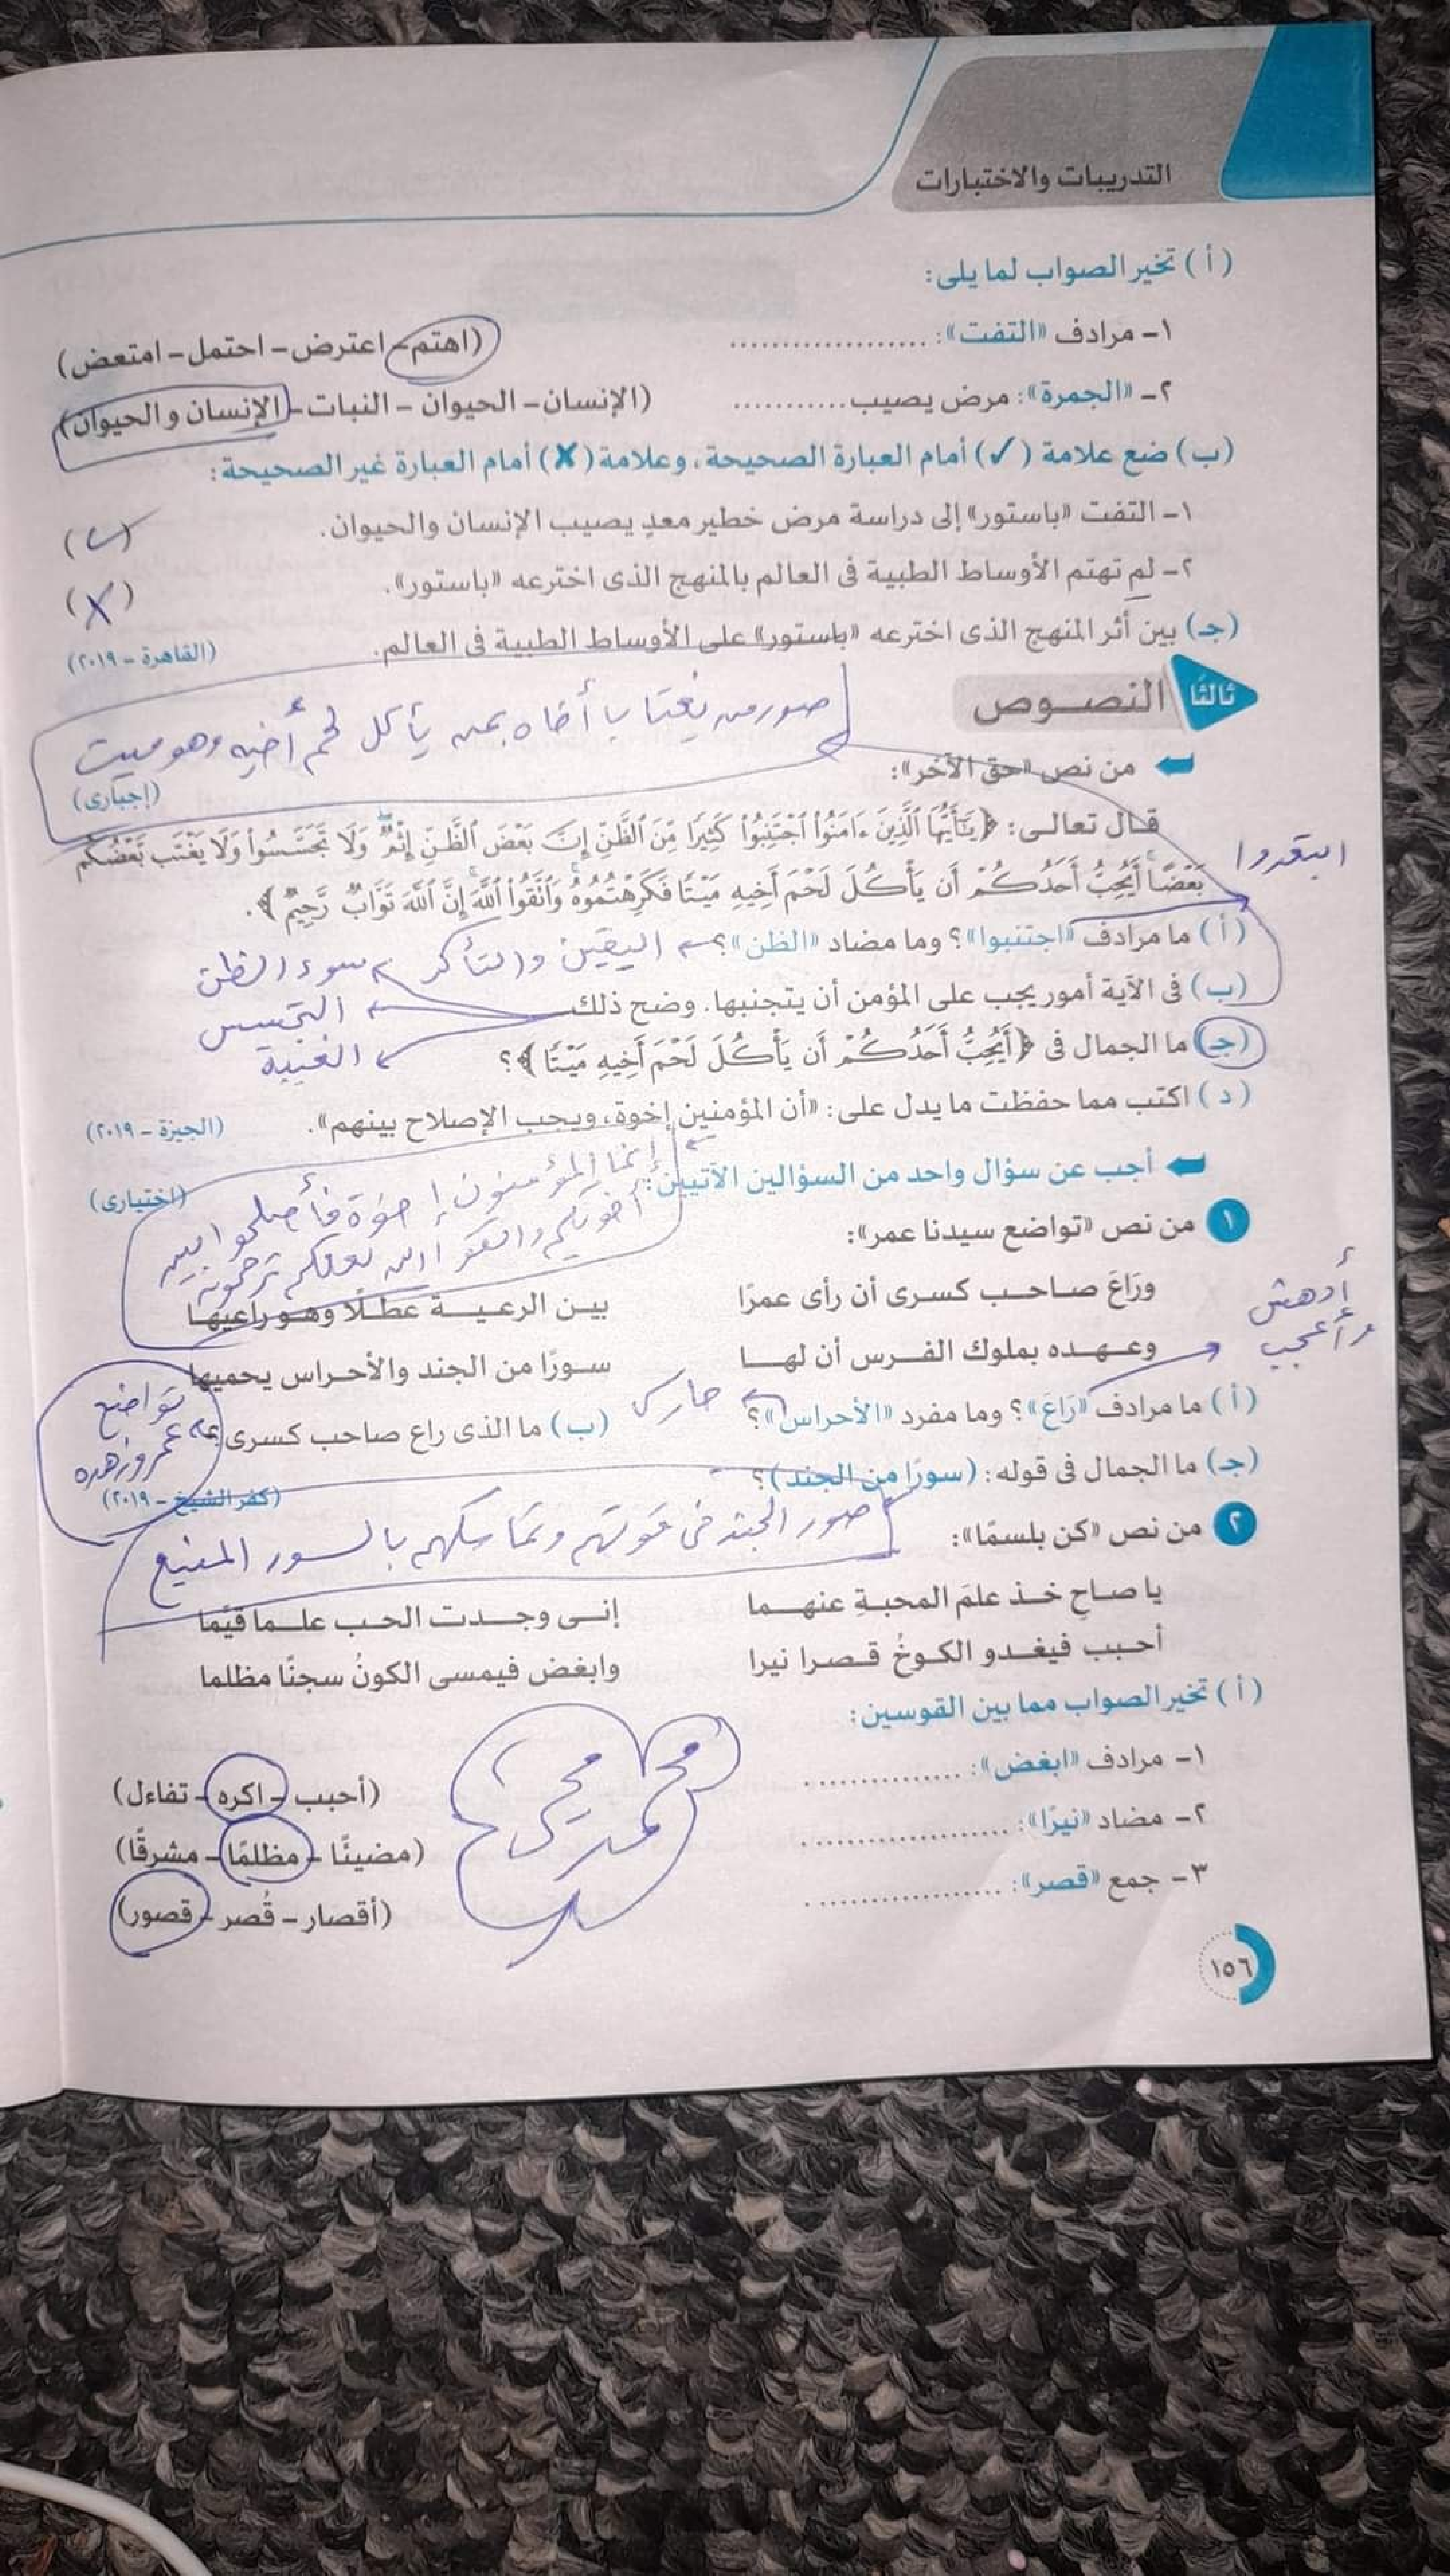 التدريبات والاختبارات
(أ) تخير الصواب لما يلى:
١- مرادف «التفت»: .................... (اهتم - اعترض - احتمل - امتعض)
٢- «الجمرة»: مرض يصيب ........... (الإنسان - الحيوان - النبات - الإنسان و الحيوان)
(ب) ضع علامة (✓) أمام العبارة الصحيحة، وعلامة (✗) أمام العبارة غير الصحيحة:
١- التفت «باستور» إلى دراسة مرض خطير معدٍ يصيب الإنسان والحيوان. (✓)
٢- لم تهتم الأوساط الطبية فى العالم بالمنهج الذى اخترعه «باستور». (X)
(جـ) بين أثر المنهج الذى اخترعه «باستور» على الأوساط الطبية فى العالم. (القاهرة - ٢٠١٩)
ثالثًا النصوص
صور من يغتاب أخاه بمن يأكل لحم أخيه وهو ميت
من نص «حق الآخر»: (إجبارى)
قال تعالى: ﴿يَٰٓأَيُّهَا ٱلَّذِينَ ءَامَنُوا۟ ٱجْتَنِبُوا۟ كَثِيرًا مِّنَ ٱلظَّنِّ إِنَّ بَعْضَ ٱلظَّنِّ إِثْمٌ ۖ وَلَا تَجَسَّسُوا۟ وَلَا يَغْتَب بَّعْضُكُم
بَعْضًا ۚ أَيُحِبُّ أَحَدُكُمْ أَن يَأْكُلَ لَحْمَ أَخِيهِ مَيْتًا فَكَرِهْتُمُوهُ ۚ وَٱتَّقُوا۟ ٱللَّهَ ۚ إِنَّ ٱللَّهَ تَوَّابٌ رَّحِيمٌ﴾.
ابتعدوا
(أ) ما مرادف «اجتنبوا»؟ وما مضاد «الظن»؟ اليقين والتأكد
سوء الظن
(ب) فى الآية أمور يجب على المؤمن أن يتجنبها. وضح ذلك
التجسس
الغيبة
(جـ) ما الجمال فى ﴿أَيُحِبُّ أَحَدُكُمْ أَن يَأْكُلَ لَحْمَ أَخِيهِ مَيْتًا﴾؟
(د) اكتب مما حفظت ما يدل على: «أن المؤمنين إخوة، ويجب الإصلاح بينهم». (الجيزة - ٢٠١٩)
إنما المؤمنون إخوة فأصلحوا بين
أخويكم واتقوا الله لعلكم ترحمون
أجب عن سؤال واحد من السؤالين الآتيين: (اختيارى)
١ من نص «تواضع سيدنا عمر»:
ورَاعَ صاحب كسرى أن رأى عمرًا بين الرعية عطلًا وهو راعيها
وعهده بملوك الفرس أن لها سورًا من الجند والأحراس يحميها
أدهش
وأعجب
(أ) ما مرادف «رَاعَ»؟ وما مفرد «الأحراس»؟ حارس (ب) ما الذى راع صاحب كسرى؟
تواضع
عمر وزهده
(جـ) ما الجمال فى قوله: (سورًا من الجند)؟ (كفر الشيخ - ٢٠١٩)
صور الجند فى قوتهم وتماسكهم بالسور المنيع
٢ من نص «كن بلسمًا»:
يا صاحِ خذ علمَ المحبةِ عنهما إنى وجدت الحب علما قيّما
أحبب فيغدو الكوخُ قصرا نيرا وابغض فيمسى الكونُ سجنًا مظلما
(أ) تخير الصواب مما بين القوسين:
١- مرادف «ابغض»: ................ (أحبب - اكره - تفاءل)
٢- مضاد «نيرًا»: ..................... (مضيئًا - مظلمًا - مشرقًا)
٣- جمع «قصر»: .................... (أقصار - قُصر - قصور)
١٥٦